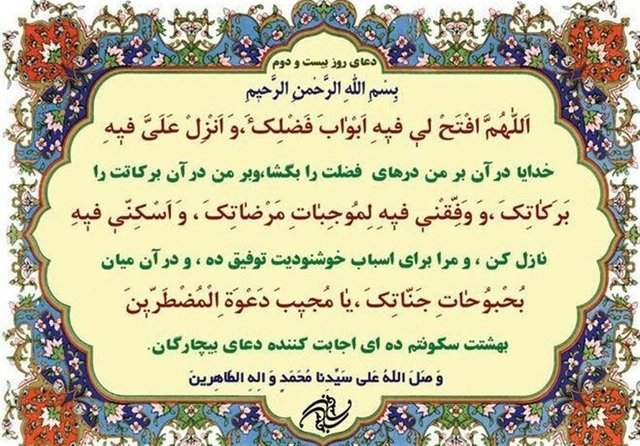 دعای روز بیست و دوم
بِسْمِ اللهِ الرَّحْمنِ الرَّحِيمِ
اَللّٰهُمَّ افْتَحْ لي فيهِ اَبْوٰابَ فَضْلِكَ،وَ اَنْزِلْ عَلَيَّ فيهِ
خدایا درآن بر من درهای فضلت را بگشا،وبر من درآن برکاتت را
بَرَكٰاتِكَ ،وَ وَفِّقْني فيهِ لِمُوجِبٰاتِ مَرْضٰاتِكَ ، وَ اَسْكِنّي فيهِ
نازل کن ، و مرا برای اسباب خوشنودیت توفیق ده ، و درآن میان
بُحْبُوحٰاتِ جَنّٰاتِكَ ،يٰا مُجيبَ دَعْوَةِ الْمُضْطَرّينَ
بهشتت سکونتم ده ای اجابت کننده دعای بیچارگان.
وَ صَلَ اللهُ عَلی سَيِّدِنا مُحَمَدٍ وَ الِهِ الطاهِرينَ